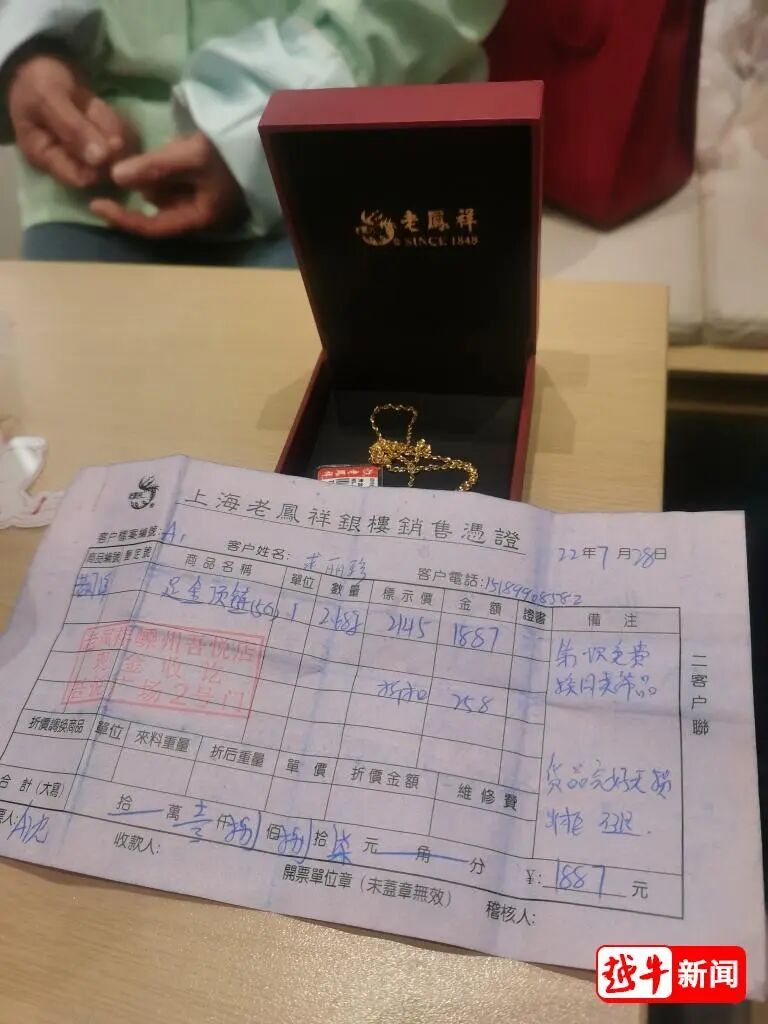 老鳳祥
SINCE 1848
老鳳祥
上海老鳳祥銀樓銷售憑證
客户檔案編號: A.
客户姓名:
客户電話:
22年7月28日
商品編號 鑒定號
商品名稱
單位
數量
標示價
金額
證書
備注
足金项链(5G)
2.68g
2145
1887
第一次免费
换同类饰品
折扣
258
货品完好无损
嵊州吾悦店
现金收讫
广场2号门
折價調换商品
單位
來料重量
折后重量
單價
折價金額
維修費
合計(大寫)
拾 萬 仟 捌 佰 捌 拾 柒 元 角 分
¥: 1887 元
收款人:
開票單位章(未蓋章無效)
稽核人:
二客户聯
越牛新闻